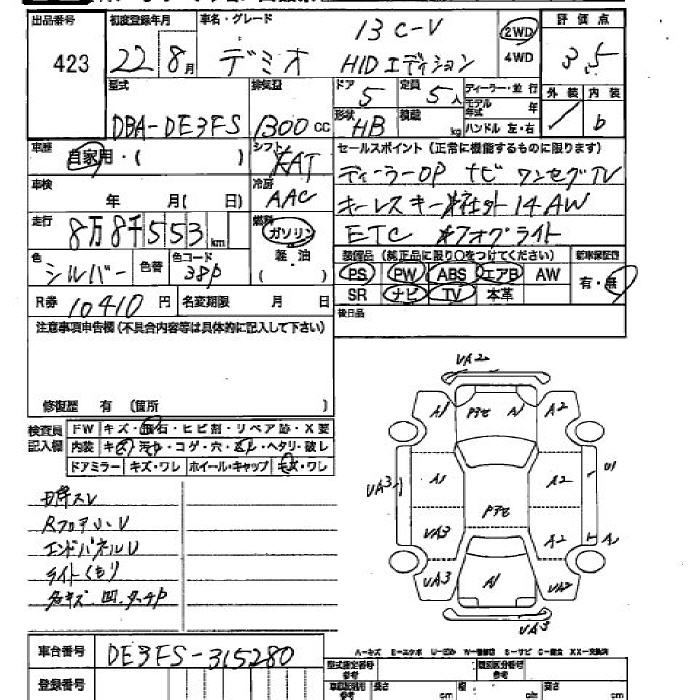 出品番号 423
初度登録年月 22年 8月
車名・グレード デミオ 13C-V HIDエディション
2WD
4WD
評価点 3.5
外装 内装 b
型式 DBA-DE3FS
排気量 1300cc
ドア 5
定員 5人
形状 HB
積載 kg
ディーラー・並行
モデル年式 年
ハンドル 左・右
車歴 自家用・( )
シフト FAT
セールスポイント (正常に機能するものに限ります)
ディーラーOP ナビ ワンセグTV
キーレスキー 14AW
ETC フォグライト
車検 年 月( 日)
冷房 AAC
走行 8万8千553km
燃料 ガソリン
軽・油
( )
色 シルバー
色替
色コード 38P
装備品 (純正品に限り○をつけてください)
PS PW ABS エアB AW
SR ナビ TV 本革
新車保証書 有・無
R券 10410円
名変期限 月 日
後日品
注意事項申告欄(不具合内容等は具体的に記入して下さい)
修復歴 有 (箇所 )
検査員記入欄
FW キズ・飛石・ヒビ割・リペア跡・X要
内装 キズ・汚れ・コゲ・穴・ ・ヘタリ・破レ
ドアミラー キズ・ワレ ホイール・キャップ キズ・ワレ
エンドパネルU
ライトくもり
VA2
A1 アセ A1 A2
VA3 A1 A2 U1
VA3 アセ A2 A
VA3 A1 VA2
VA3
車台番号 DE3FS-315280
登録番号
A…キズ E…エクボ U…凹み W…補修跡 S…サビ C…腐食 XX…交換済
型式指定番号 参考
類別区分番号 参考
長さ cm 幅 cm 高さ cm